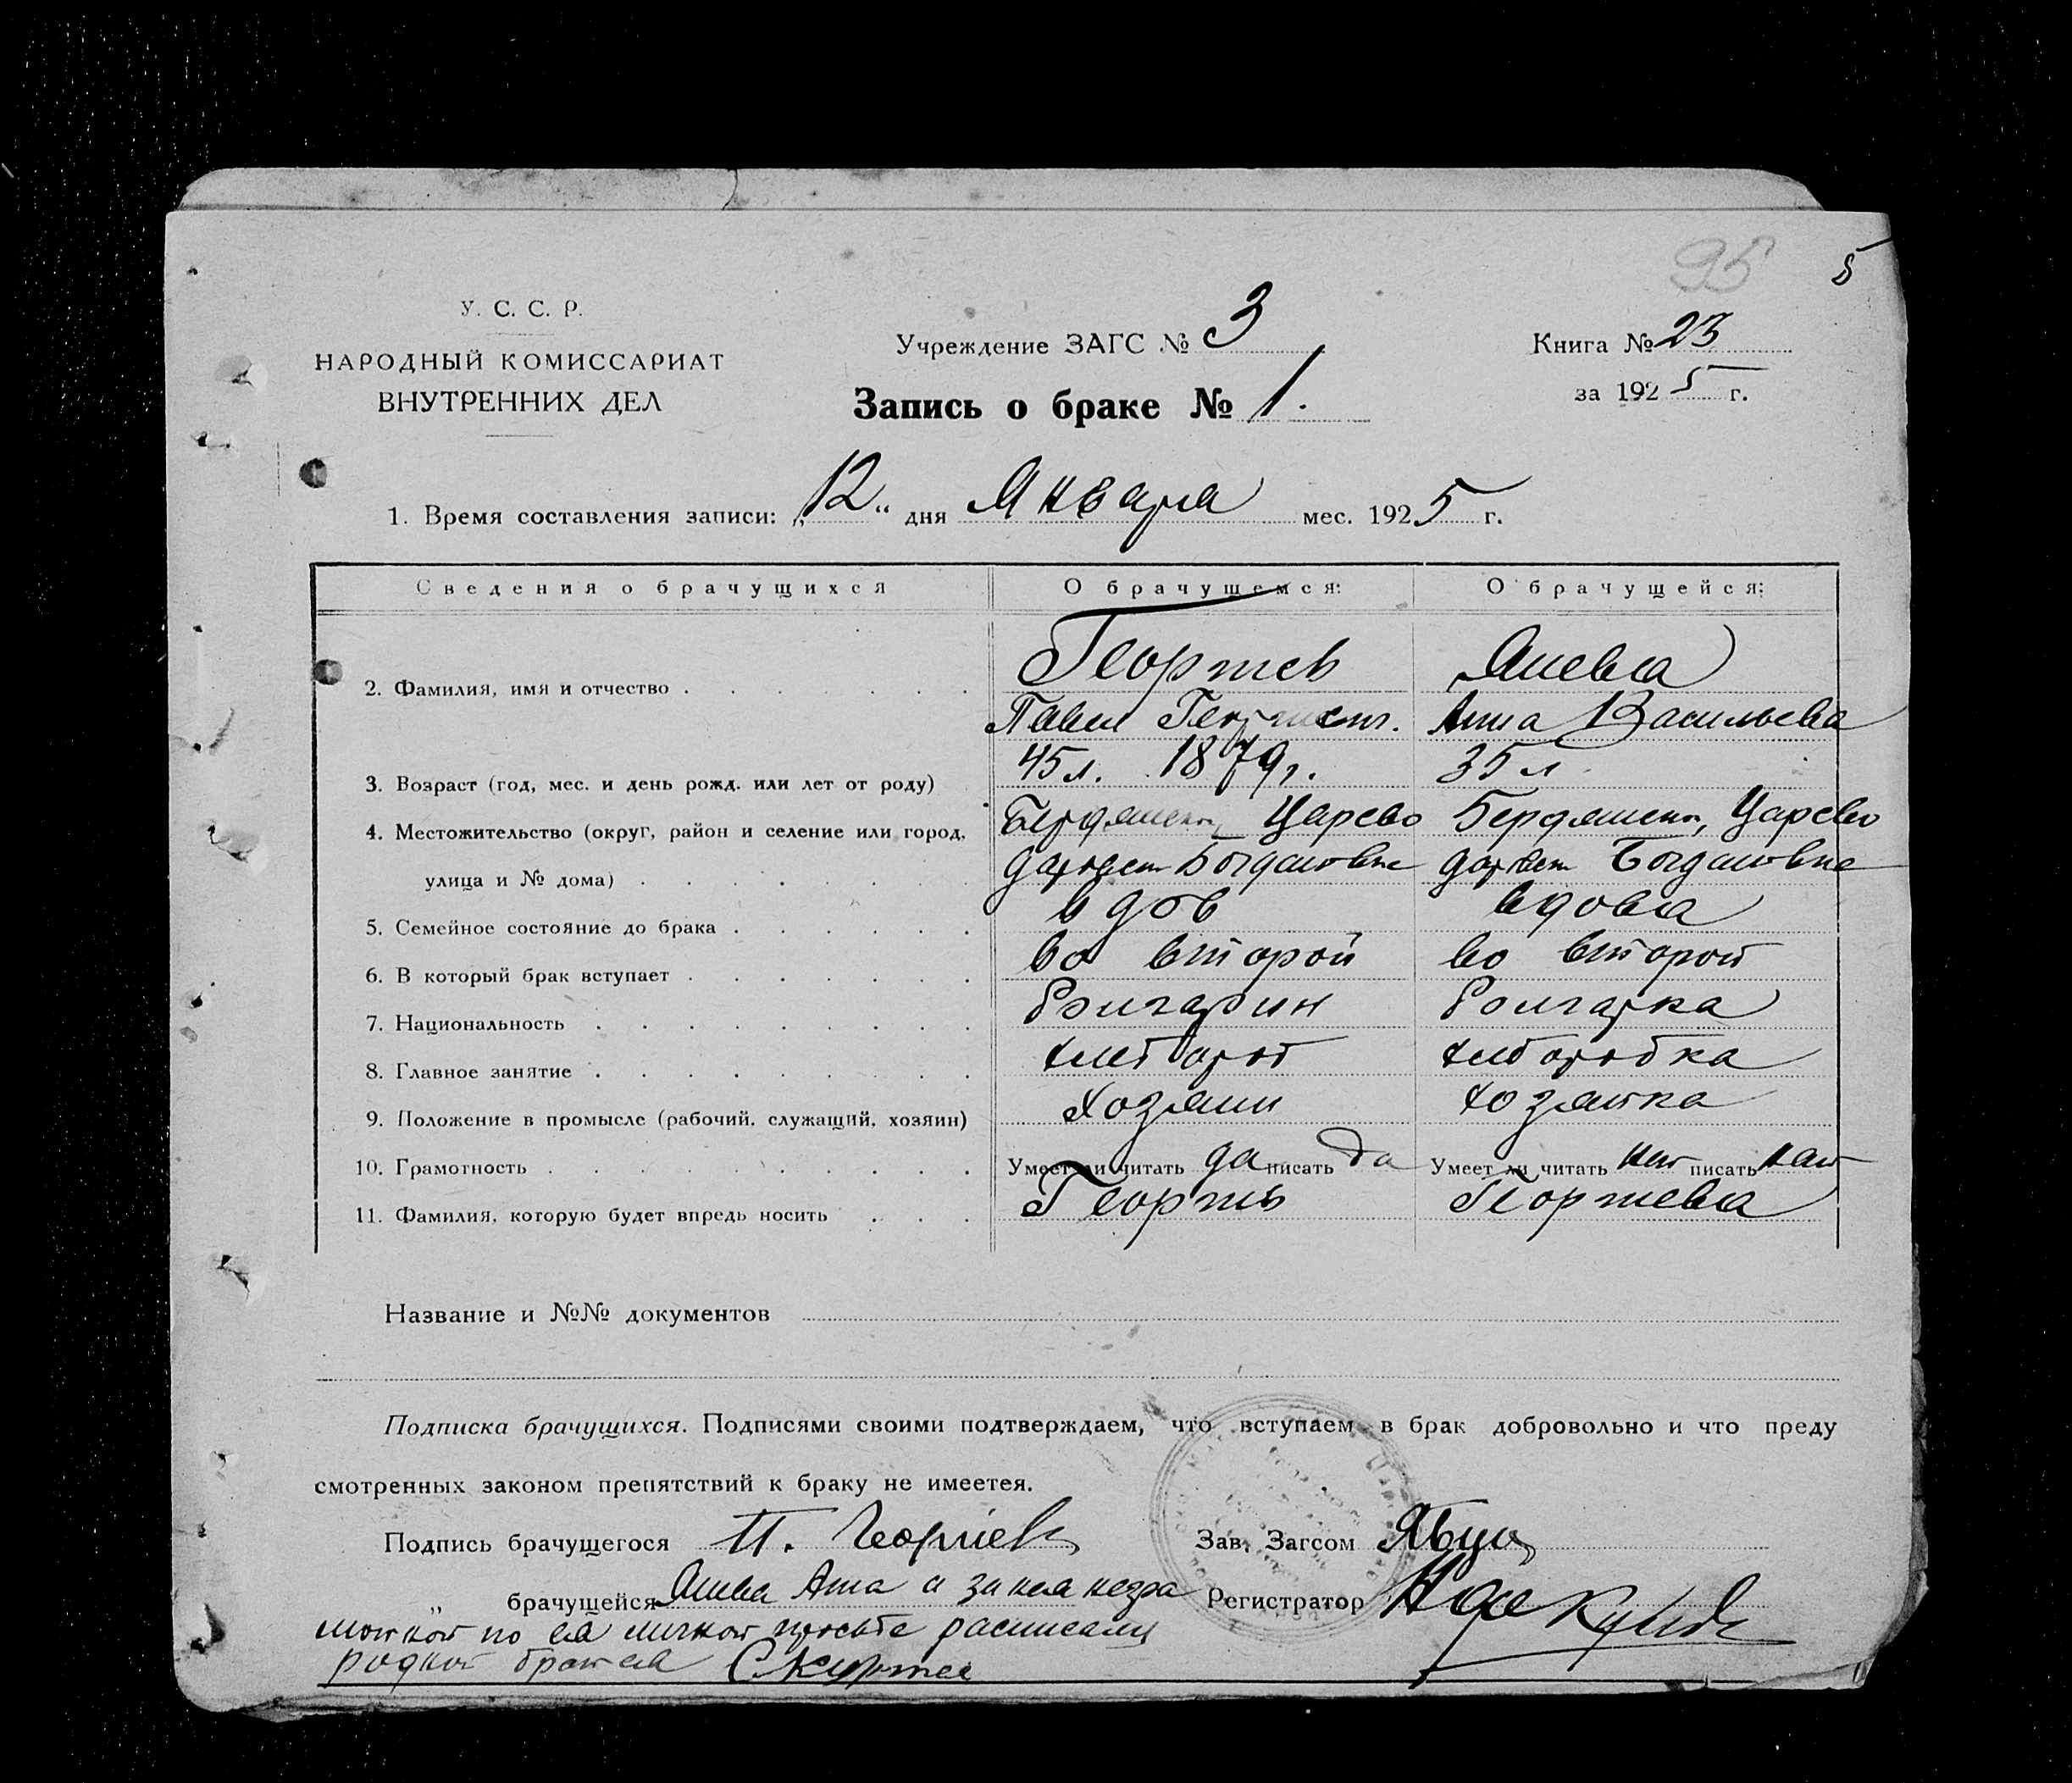 95
5
У. С. С. Р.
НАРОДНЫЙ КОМИССАРИАТ
ВНУТРЕННИХ ДЕЛ
Учреждение ЗАГС № 3
Книга № 23
за 1925 г.
Запись о браке № 1.
1. Время составления записи: „12“ дня Января мес. 1925 г.
Сведения о брачущихся О брачущемся: О брачущейся:
2. Фамилия, имя и отчество Георгиев Янева
Павел Анна Васильева
3. Возраст (год, мес. и день рожд. или лет от роду) 45 л. 1879 г. 35 л
4. Местожительство (округ, район и селение или город, Бердянск, Царево Бердянск, Царево
улица и № дома) Богдановке Богдановке
5. Семейное состояние до брака вдов вдова
6. В который брак вступает во второй во второй
7. Национальность Болгарин Болгарка
8. Главное занятие хлебороб хлеборобка
9. Положение в промысле (рабочий, служащий, хозяин) хозяин хозяйка
10. Грамотность Умеет ли читать да писать да Умеет ли читать нет писать нет
11. Фамилия, которую будет впредь носить Георгиев Георгиева
Название и №№ документов
Подписка брачущихся. Подписями своими подтверждаем, что вступаем в брак добровольно и что преду
смотренных законом препятствий к браку не имеетея.
Подпись брачущегося П. Георгіевъ Зав. Загсом
„ брачущейся Янева Анна а за нея негра Регистратор
мотной по ея личной просьбе
родной брат ея